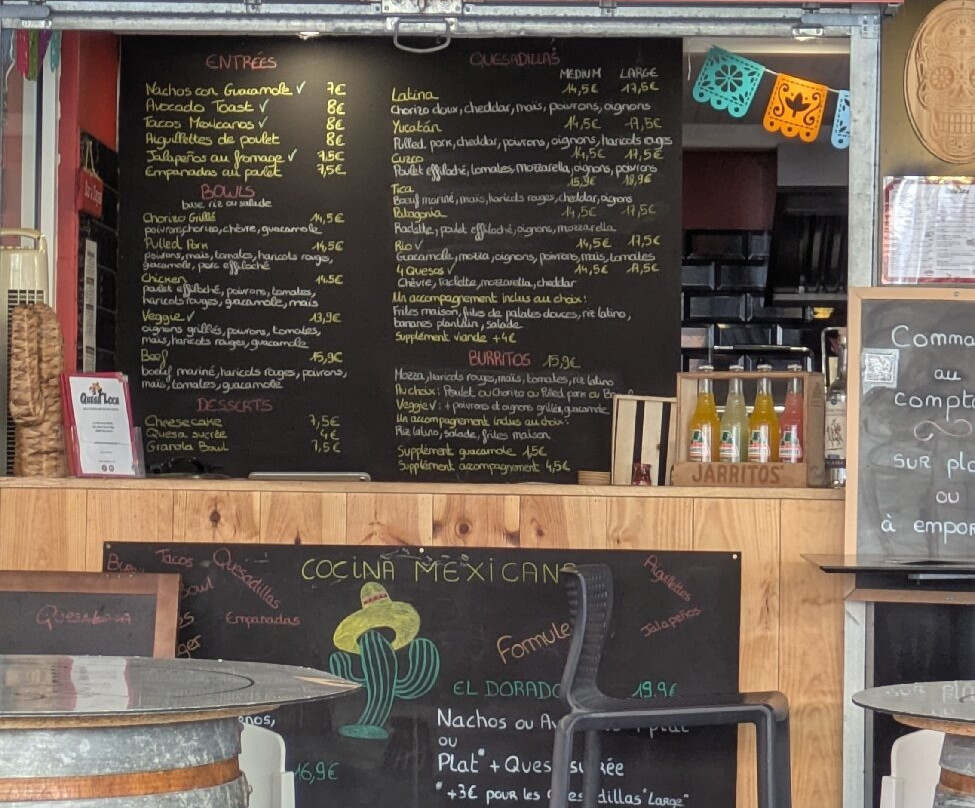 ENTRÉES
Nachos con Guacamole ✓ 7€
Avocado Toast ✓ 8€
Tacos Mexicanos ✓ 8€
Aiguillettes de poulet 8€
Jalapeños au fromage ✓ 7,5€
Empanadas au poulet 7,5€
BOWLS
base riz ou salade
Chorizo Grillé 14,5€
poivrons, chorizo, chèvre, guacamole
Pulled Porn 14,5€
poivrons, maïs, tomates, haricots rouges,
guacamole, porc effiloché
Chicken 14,5€
poulet effiloché, poivrons, tomates,
haricots rouges, guacamole, maïs
Veggie ✓ 13,9€
oignons grillés, poivrons, tomates,
maïs, haricots rouges, guacamole
Beef 15,9€
boeuf mariné, haricots rouges, poivrons,
maïs, tomates, guacamole
DESSERTS
Cheesecake 7,5€
Quesa sucrée 4€
Granola Bowl 7,5€
QUESADILLAS
MEDIUM LARGE
Latina 14,5€ 17,5€
Chorizo doux, cheddar, maïs, poivrons, oignons
Yucatán 14,5€ 17,5€
Pulled porn, cheddar, poivrons, oignons, haricots rouges
Cuzco 14,5€ 17,5€
Poulet effiloché, tomates, mozzarella, oignons, poivrons
Tica 15,9€ 18,9€
Boeuf mariné, maïs, haricots rouges, cheddar, oignons
Patagonia 14,5€ 17,5€
Raclette, poulet effiloché, oignons, mozzarella
Rio ✓ 14,5€ 17,5€
Guacamole, mozza, oignons, poivrons, maïs, tomates
4 Quesos ✓ 14,5€ 17,5€
Chèvre, raclette, mozzarella, cheddar
Un accompagnement inclus au choix:
Frites maison, frites de patates douces, riz latino,
bananes plantain, salade
Supplément viande +4€
BURRITOS 15,9€
Mozza, haricots rouges, maïs, tomates, riz latino
Au choix: Poulet ou Chorizo ou Pulled porn ou
Veggie ✓: + poivrons et oignons grillés, guacamole
Un accompagnement inclus au choix:
Riz latino, salade, frites maison
Supplément guacamole 1,5€
Supplément accompagnement 4,5€
Quesa Loca
JARRITOS
au
SUR
OU
à
COCINA MEXICAN
Tacos
Quesadillas
Empanadas
Aiguillettes
Jalapeños
Formule
EL DORADO 19,9€
Nachos ou
ou
Plat* +
*+3€ pour les "Large"
16,9€